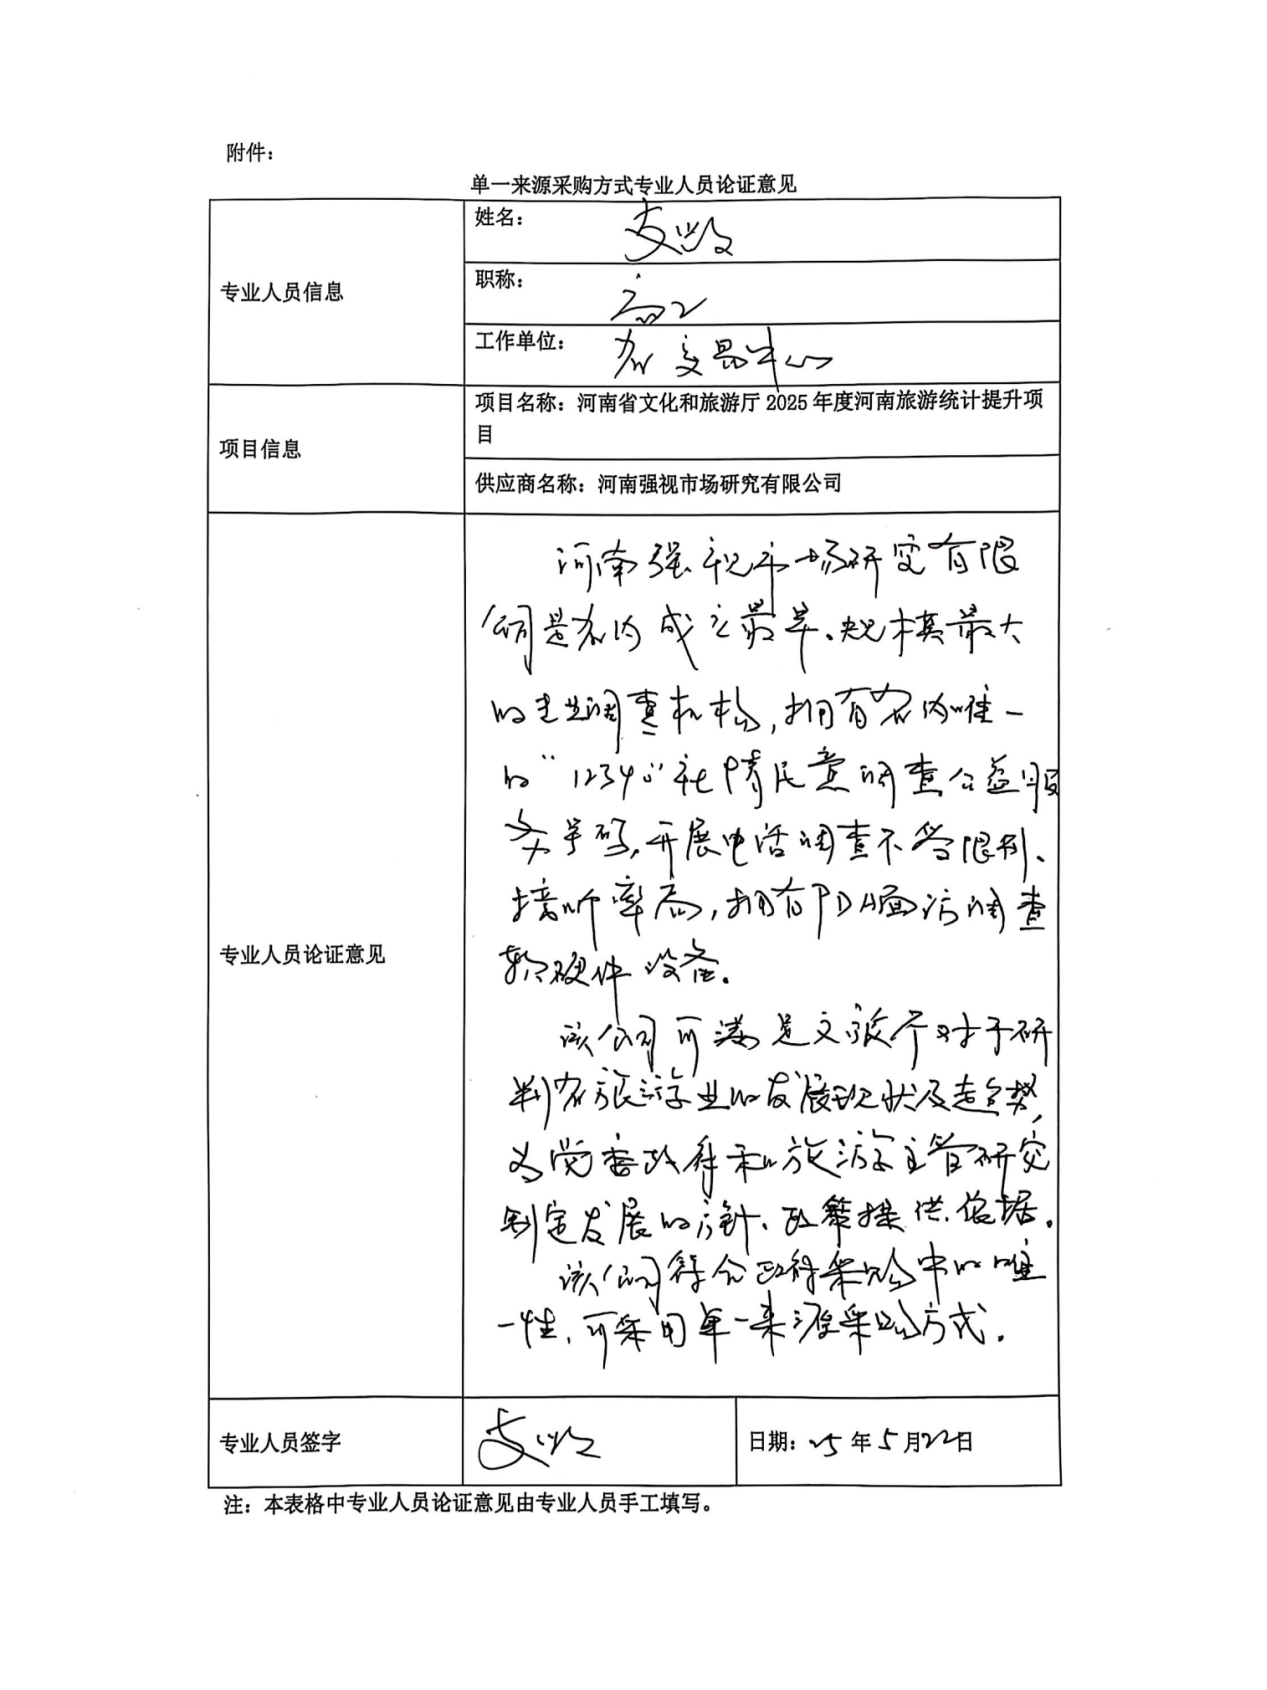 附件：
单一来源采购方式专业人员论证意见
专业人员信息
姓名：
职称：高工
工作单位：省交易中心
项目信息
项目名称：河南省文化和旅游厅 2025 年度河南旅游统计提升项
目
供应商名称：河南强视市场研究有限公司
专业人员论证意见
河南强视市场研究有限
公司是省内成立最早、规模最大
的专业调查机构，拥有省内唯一
的“12340”社情民意调查公益服
务号码，开展电话调查不受限制、
接听率高，拥有PDA面访调查
软硬件设备。
该公司可满足文旅厅对于研
判省旅游业的发展现状及走势，
为党委政府和旅游主管研究
制定发展的方针、政策提供依据。
该公司符合政府采购中的唯
一性，可采用单一来源采购方式。
专业人员签字
日期：25年5月22日
注：本表格中专业人员论证意见由专业人员手工填写。